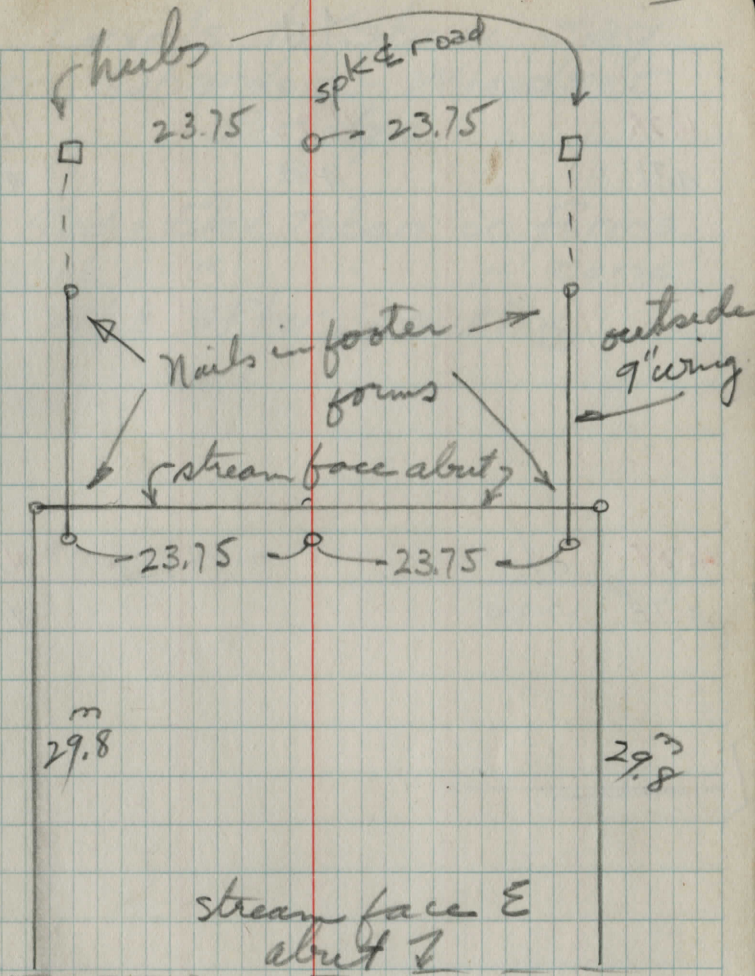 hubs
spk ℄ road
23.75
23.75
Nails in footer
forms
outside
9" wing
stream face abut
23.75
23.75
29.83
29.83
stream face E
abut